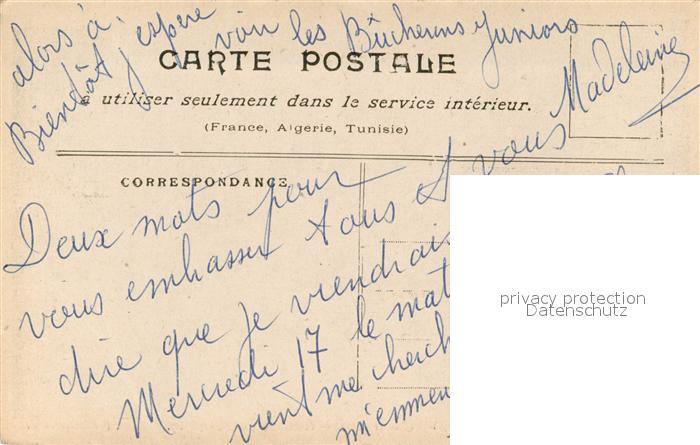 alors à
Bientôt j'espère
voir les Bûcherons Juniors
Madeleine
CARTE POSTALE
à utiliser seulement dans le service intérieur.
(France, Algerie, Tunisie)
CORRESPONDANCE
Deux mots pour
vous embrasser tous et vous
dire que je viendrai
Mercredi 17 le mat
vient me cherch
m'emmen
privacy protection
Datenschutz